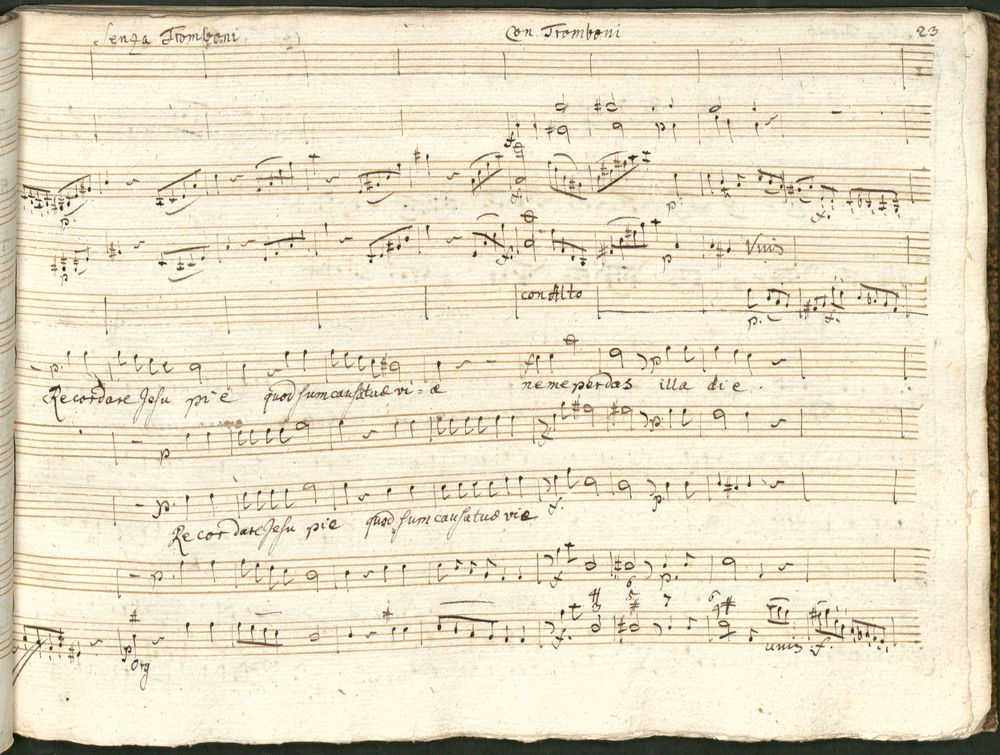 Senza Tromboni Con Tromboni 23
f
p. f. p f.
p f. p Unis
con Alto p. f.
p. Recordare Jesu pie quod sum causa tuæ viæ f ne me perdas p illa die.
p
p. f. p.
Recordare Jesu pie quod sum causa tuæ viæ
p. f p.
6
4 5 7 6
3
p f. unis f.
Org